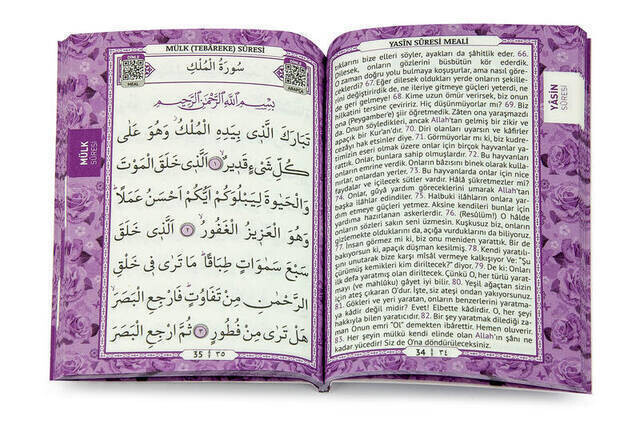 YASİN SÛRESİ MEALİ
pıklarını bize elleri söyler, ayakları da şâhitlik eder. 66.
Dilesek, onların gözlerini büsbütün kör ederdik.
O zaman doğru yolu bulmaya koşuşurlar, ama nasıl göre-
cekler? 67. Eğer dilesek oldukları yerde onların şekille-
rini değiştirirdik de, ne ileriye gitmeye güçleri yeterdi, ne
de geri gelmeye! 68. Kime uzun ömür verirsek, biz onun
hilkatini tersine çeviririz. Hiç düşünmüyorlar mı? 69. Biz
ona (Peygamber'e) şiir öğretmedik. Zâten ona yaraşmazdı
da. Onun söyledikleri, ancak Allah'tan gelmiş bir zikir ve
apaçık bir Kur'an'dır. 70. Diri olanları uyarsın ve kâfirler
cezâyı hak etsinler diye. 71. Görmüyorlar mı ki, biz kudre-
timizin eseri olmak üzere onlar için birçok hayvanlar ya-
rattık. Onlar, bunlara sahip olmuşlardır. 72. Bu hayvanları
onların emrine verdik. Onların bâzısını binek olarak kulla-
nırlar, onlardan yerler. 73. Bu hayvanlarda onlar için nice
faydalar ve içilecek sütler vardır. Hâlâ şükretmezler mi?
74. Onlar, gûyâ yardım göreceklerini umarak Allah'tan
başka ilâhlar edindiler. 75. Halbuki ilâhların onlara yar-
dım etmeye güçleri yetmez. Aksine kendileri bunlar için
yardıma hazırlanan askerlerdir. 76. (Resûlüm!) O hâlde
onların sözleri sakın seni üzmesin. Kuşkusuz biz, onların
gizlemekte olduklarını da, açığa vurduklarını da biliyoruz.
77. İnsan görmez mi ki, biz onu meniden yarattık. Bir de
bakıyorsun ki, apaçık düşman kesilmiş. 78. Kendi yaratılı-
şını unutarak bize karşı misâl vermeye kalkışıyor Ve: "Şu
çürümüş kemikleri kim diriltecek?" diyor. 79. De ki: Onları
ilk defa yaratmış olan diriltecek. Çünkü O, her türlü yarat-
mayı (ve mahlûku) gâyet iyi bilir. 80. Yeşil ağaçtan sizin
için ateş çıkaran O'dur. İşte, siz ateşi ondan yakıyorsunuz.
81. Gökleri ve yeri yaratan, onların benzerlerini yaratma-
ya kâdir değil midir? Evet! Elbette kâdirdir. O, her şeyi
hakkıyla bilen yaratıcıdır. 82. Bir şey yaratmak dilediği za-
man Onun emri "Ol" demekten ibârettir. Hemen oluverir.
83. Her şeyin mülkü kendi elinde olan Allah'ın şânı ne
kadar yücedir! Siz de O'na döndürüleceksiniz.
34 | ٣٤
YÂSİN
SÛRESİ
MÜLK (TEBÂREKE) SÛRESİ
سُورَةُ الْمُلْكِ
MEAL
بِسْمِ اللّٰهِ الرَّحْمٰنِ الرَّحٖيمِ
تَبَارَكَ الَّذٖي بِيَدِهِ الْمُلْكُ وَهُوَ عَلٰى
كُلِّ شَيْءٍ قَدٖيرٌ ﴿١﴾ اَلَّذٖي خَلَقَ الْمَوْتَ
وَالْحَيٰوةَ لِيَبْلُوَكُمْ اَيُّكُمْ اَحْسَنُ عَمَلاً
وَهُوَ الْعَزٖيزُ الْغَفُورُ ﴿٢﴾ اَلَّذٖي خَلَقَ
سَبْعَ سَمٰوَاتٍ طِبَاقاً مَا تَرٰى فٖي خَلْقِ
الرَّحْمٰنِ مِنْ تَفَاوُتٍ فَارْجِعِ الْبَصَرَ
هَلْ تَرٰى مِنْ فُطُورٍ ﴿٣﴾ ثُمَّ ارْجِعِ الْبَصَرَ
35 | ٣٥
MÜLK
SÛRESİ